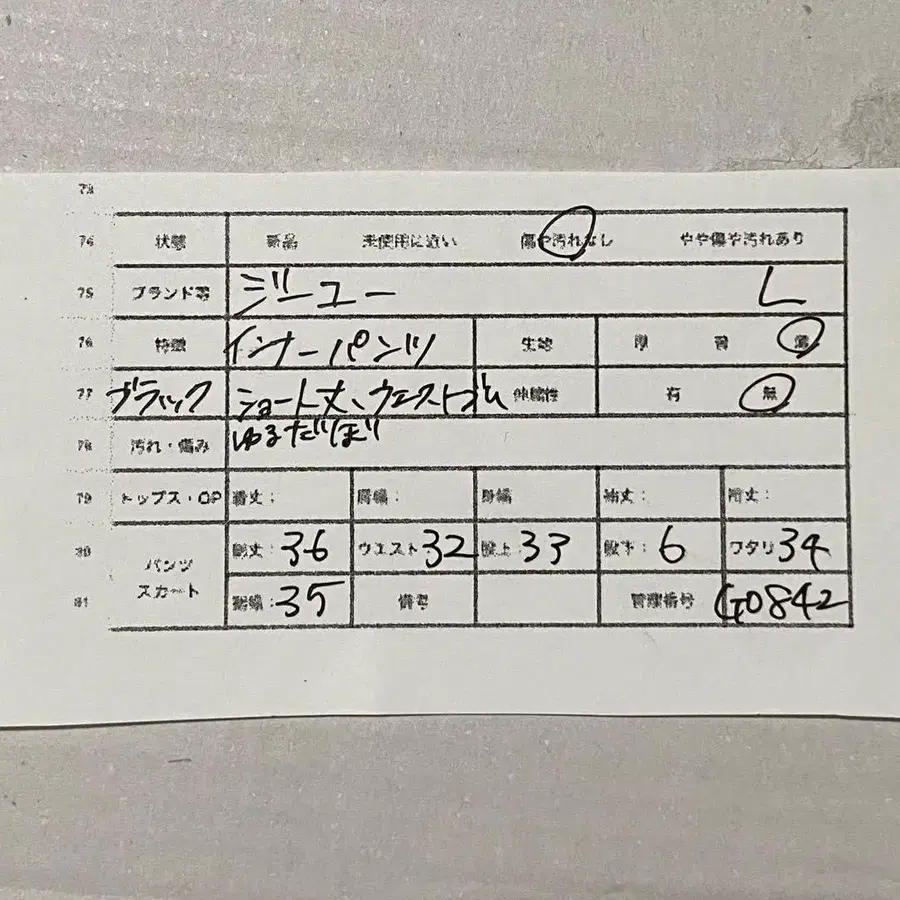 73
74 状態 新品 未使用に近い 傷や汚れなし やや傷や汚れあり
75 ブランド等 ジーユー L
76 特徴 インナーパンツ 生地 厚 普 薄
77 ブラック ショート丈、ウエストゴム 伸縮性 有 無
78 汚れ・傷み ゆるだぼ
79 トップス・OP 着丈: 肩幅: 身幅 袖丈: 裄丈:
80 パンツ 総丈:36 ウエスト32 股上:33 股下:6 ワタリ34
81 スカート 裾幅:35 備考 管理番号 G0842